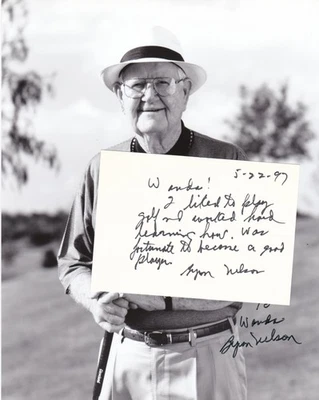 5-22-97
Wanda!
I liked to play
golf and worked hard
learning how. Was
fortunate to become a good
player
Byron Nelson
To
Wanda
Byron Nelson